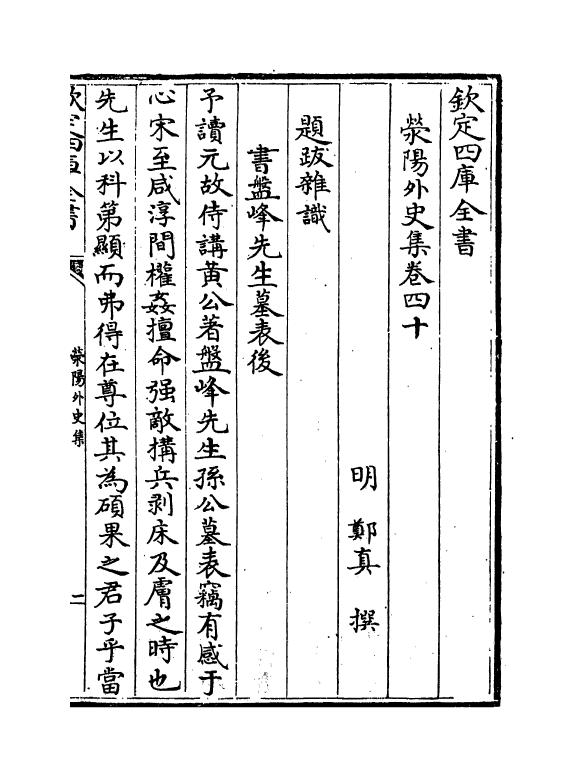 欽定四庫全書
滎陽外史集卷四十
明 鄭真 撰
題跋雜識
書盤峰先生墓表後
予讀元故侍講黃公著盤峰先生孫公墓表竊有感于
心宋至咸淳間權姦擅命强敵搆兵剥床及膚之時也
先生以科第顯而弗得在尊位其為碩果之君子乎當
欽定四庫全書
滎陽外史集